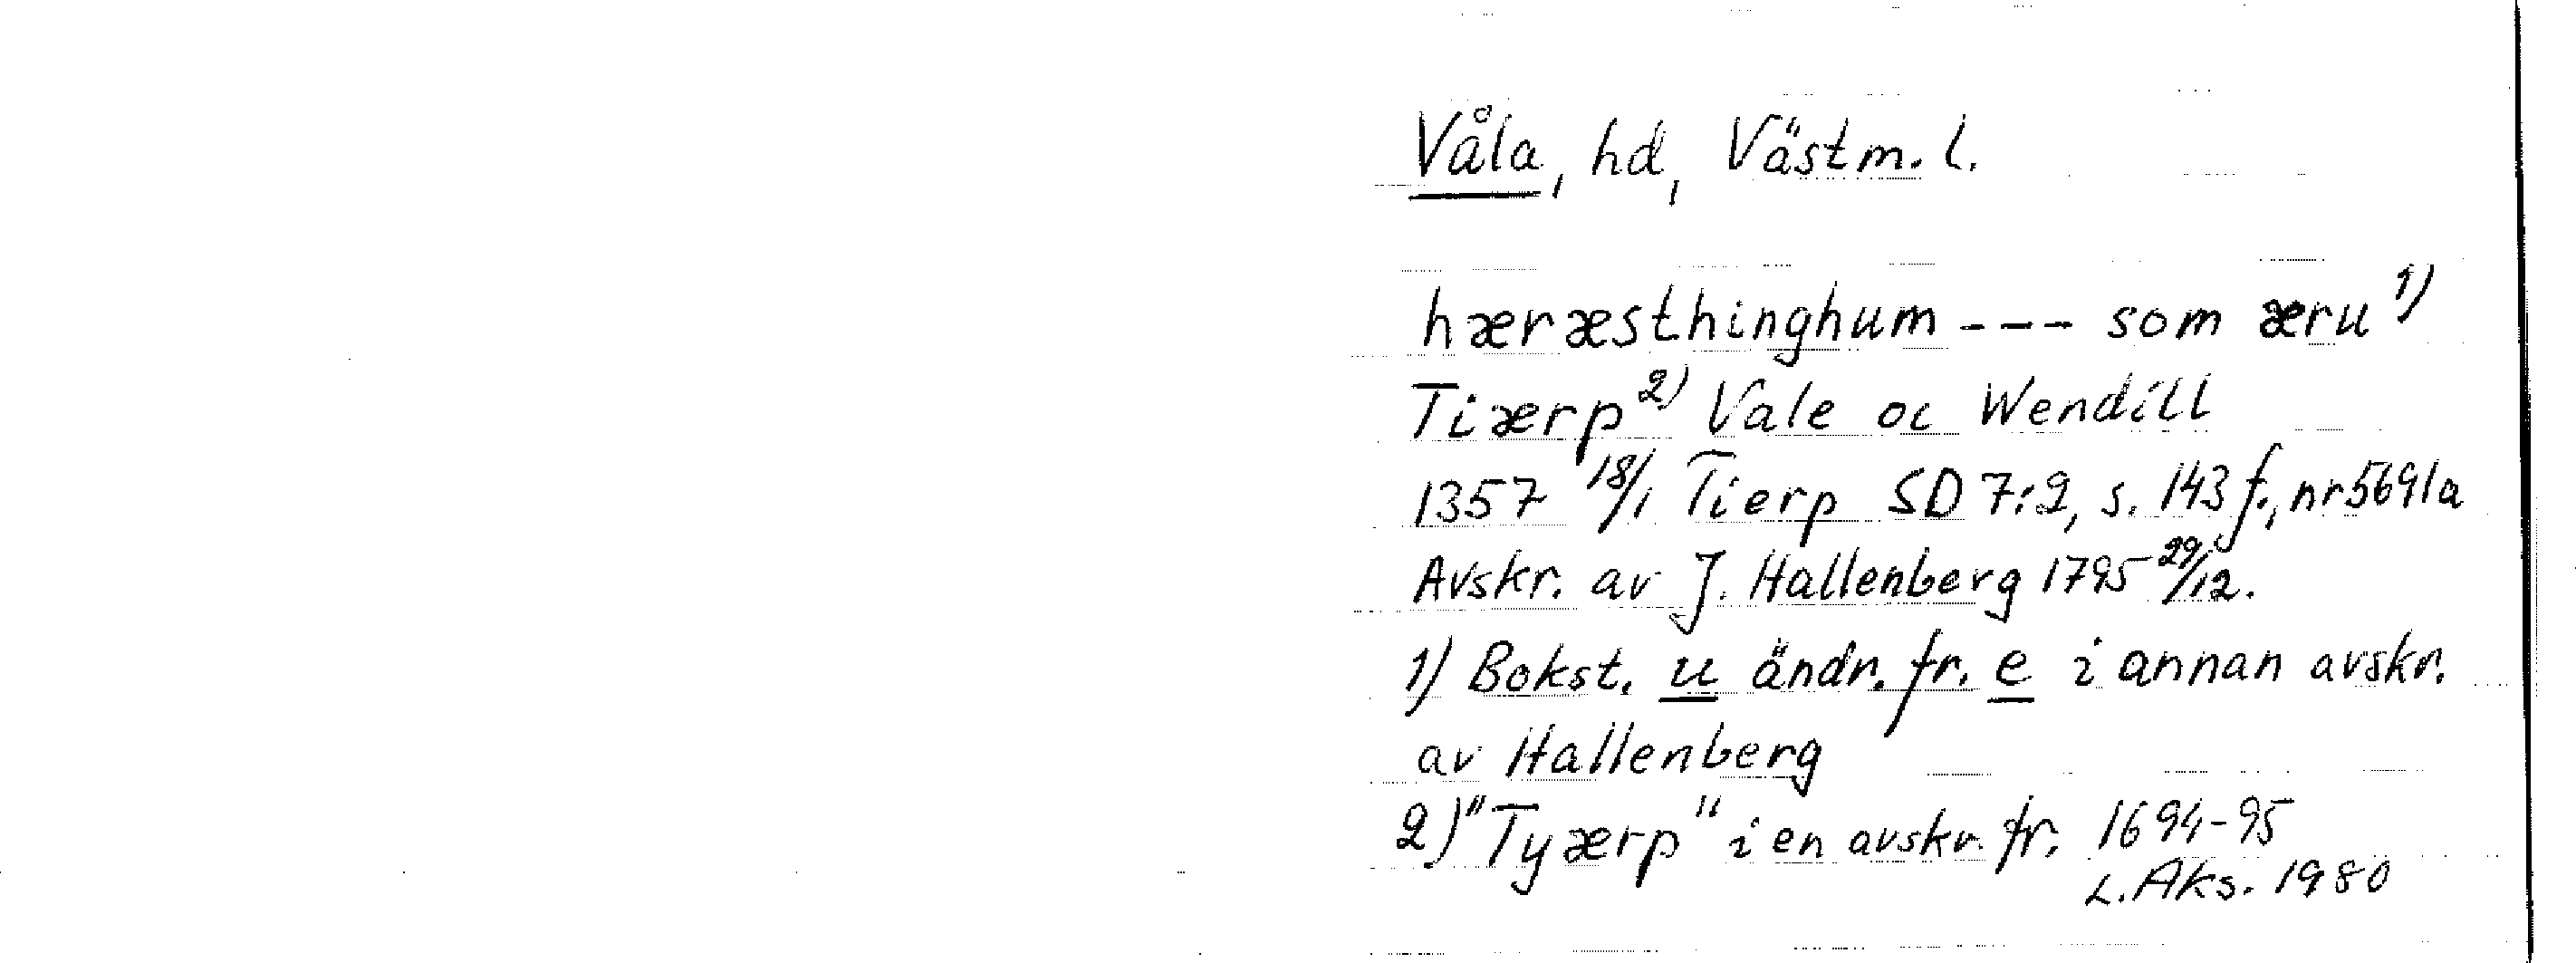 Våla, hd, Västm. l.
hæræsthinghum --- som æru 1)
Tiærp 2) Vale oc Wendill
1357 18/1 Tierp SD 7:2, s. 143 f., nr 5691a
Avskr. av J. Hallenberg 1795 29/12.
1) Bokst. u ändr. fr. e i annan avskr.
av Hallenberg
2) "Tyærp" i en avskr. fr. 1694-95
L. Aks. 1980